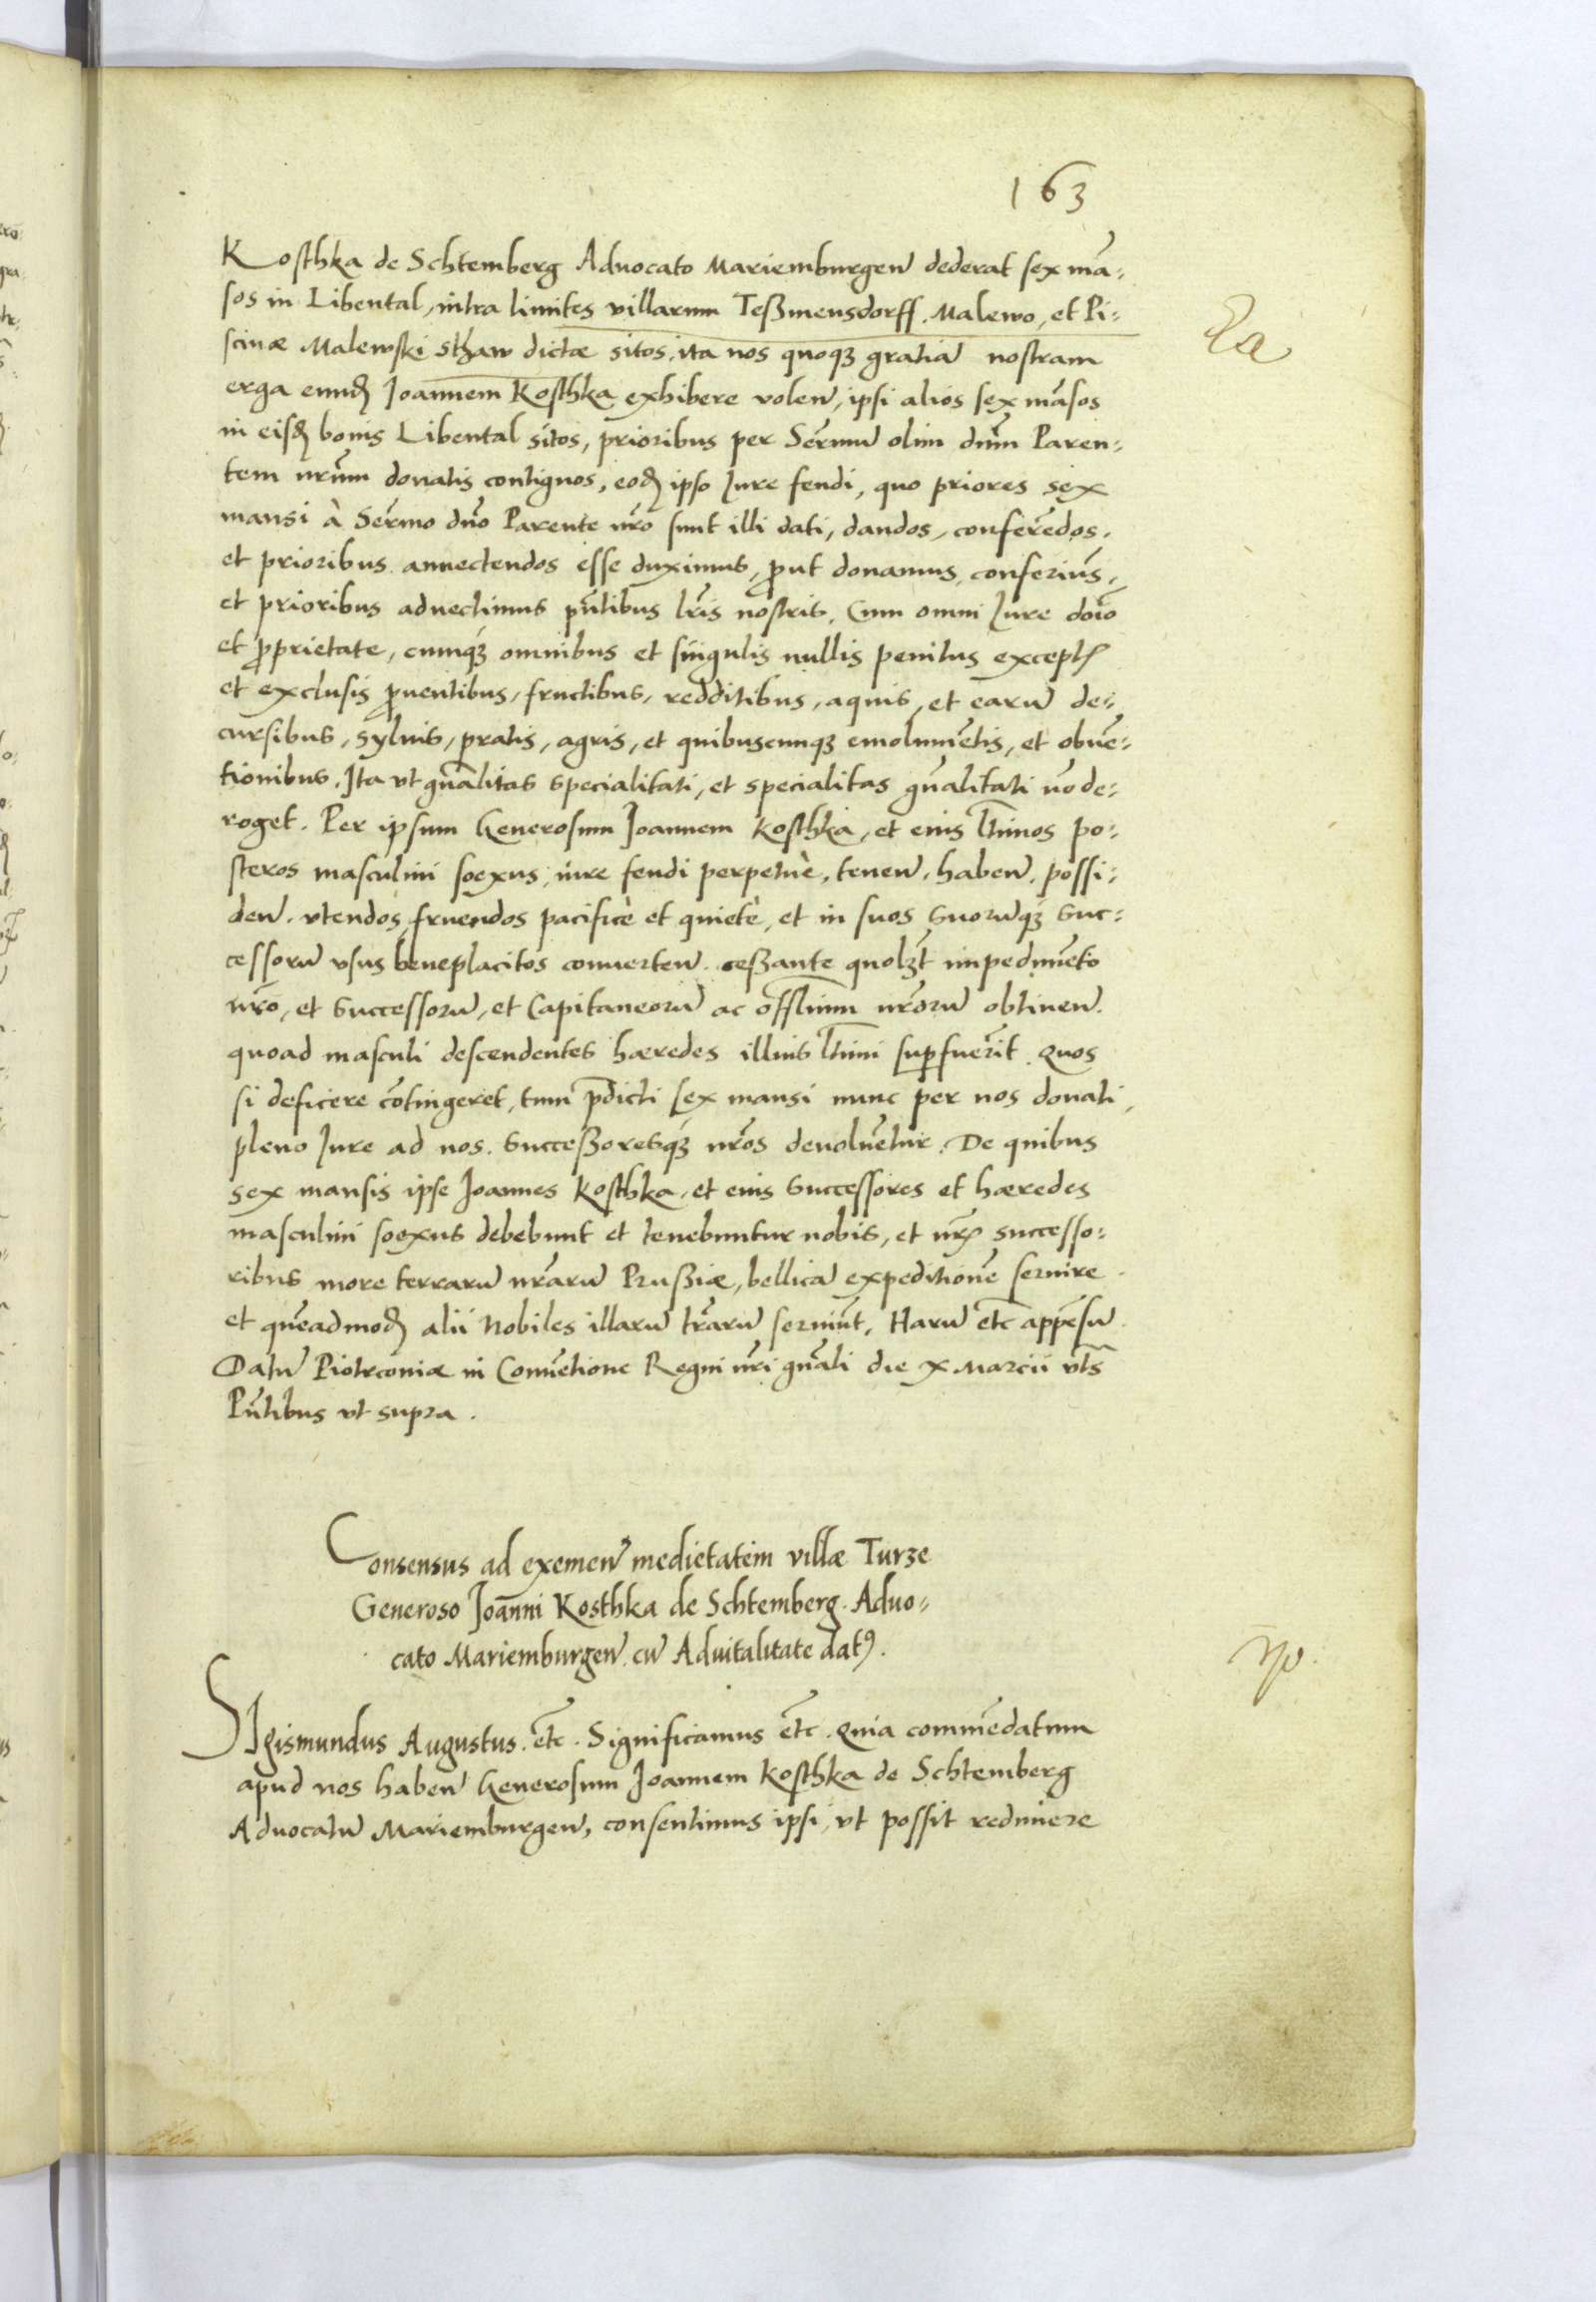 163
Kosthka de Schtemberg Aduocato Mariemburgen̄ dederat sex mā-
sos in Libental, intra limites villarum Teßmensdorff. Malewo, et Pi-
scinæ Malewski sthaw dictæ sitos, ita nos quoqꝫ gratiā nostram
erga eundꝫ Joannem Kosthka exhibere volen̄, ipsi alios sex māsos
in eisdꝫ bonis Libental sitos, prioribus per Sermū olim dnm̄ Paren-
tem nrūm donatis contiguos, eodꝫ ipso Jure feudi, quo priores sex
mansi à Sermo dno Parente nrō sunt illi dati, dandos, conferēdos,
et prioribus annectendos esse duximus, ꝓut donamus, conferimꝰ,
et prioribus adnectimus pn̄tibus lrīs nostris. Cum omni Jure doīo
et ꝓprietate, cumqꝫ omnibus et singulis nullis penitus exceptꝭ
et exclusis ꝓuentibus, fructibus, redditibus, aquis, et earū de-
cursibus, syluis, pratis, agris, et quibuscunqꝫ emolumētis, et obuē-
tionibus. Ita vt gnalitas specialitati, et specialitas gnalitati nō de-
roget. Per ipsum Generosum Joannem Kosthka, et eius ltīmos po-
steros masculini soexus, iure feudi perpetuè, tenen̄, haben̄, possi-
den̄, vtendos, fruendos pacificè et quietè, et in suos suorūqꝫ suc-
cessorū vsus beneplacitos conuerten̄. ceßante quolꝫt impedimēto
nrō, et successorū, et Capitaneorū ac offlium nrorū obtinen̄.
quoad masculi descendentes hæredes illius ltīmi suꝑfuerīt. Quos
si deficere cōtingeret, tum p̄dicti sex mansi nunc per nos donati,
pleno Jure ad nos. succeßoresqꝫ nrōs deuoluētur. De quibus
sex mansis ipse Joannes Kosthka, et eius successores et hæredes
masculini soexus debebunt et tenebuntur nobis, et nrꝭ successo-
ribus more terrarū nrarū Prußiæ, bellicā expeditionē seruire
et quēadmodꝫ alii Nobiles illarū trarū seruiūt. Harū etc appēsū
Datū Piotrconiæ in Conuētione Regni nri gnali die X Marcii vts̄
Pn̄tibus vt supra.
Consensus ad exemen̄ medietatem villæ Turze
Generoso Joanni Kosthka de Schtemberg. Aduo-
cato Mariemburgen̄ cū Aduitalitate datꝰ.
SIgismundus Augustus. etc. Significamus etc. Quia commēdatum
apud nos haben̄ Generosum Joannem Kosthka de Schtemberg
Aduocatū Mariemburgen̄, consentimus ipsi, vt possit redimere